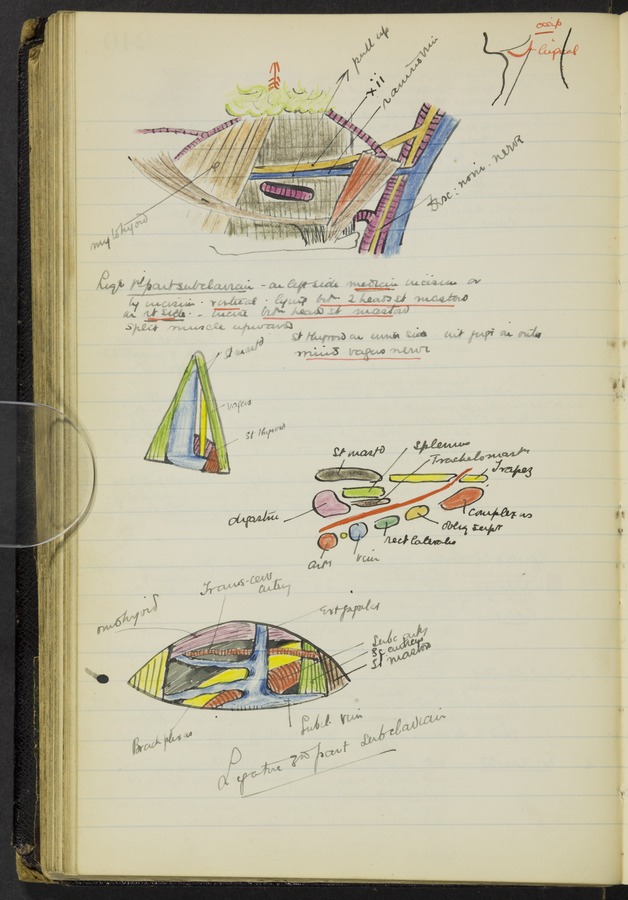 occip
lingual
pull up
xii
ranine vein
desc: noni: nerve
mylohyoid
Liga 1st part subclavian - on left side median incision or
by incision - vertical - lying bet 2 heads st mastoid
on rt side - incise bet heads st mastoid
split muscle upwards
St thyroid on inner side int jug on outer
mind vagus nerve
st mastd
vagus
St thyroid
St mastd
Splenius
Trachelomast
Trapez
digastric
Complexus
obliq supr
rect lateralis
art
vein
Trans-cerv
artery
omohyoid
Ext jugular
Subc arty
Sc anticus
St mastoid
Brach plexus
Subcl vein
Ligature 3rd part subclavian